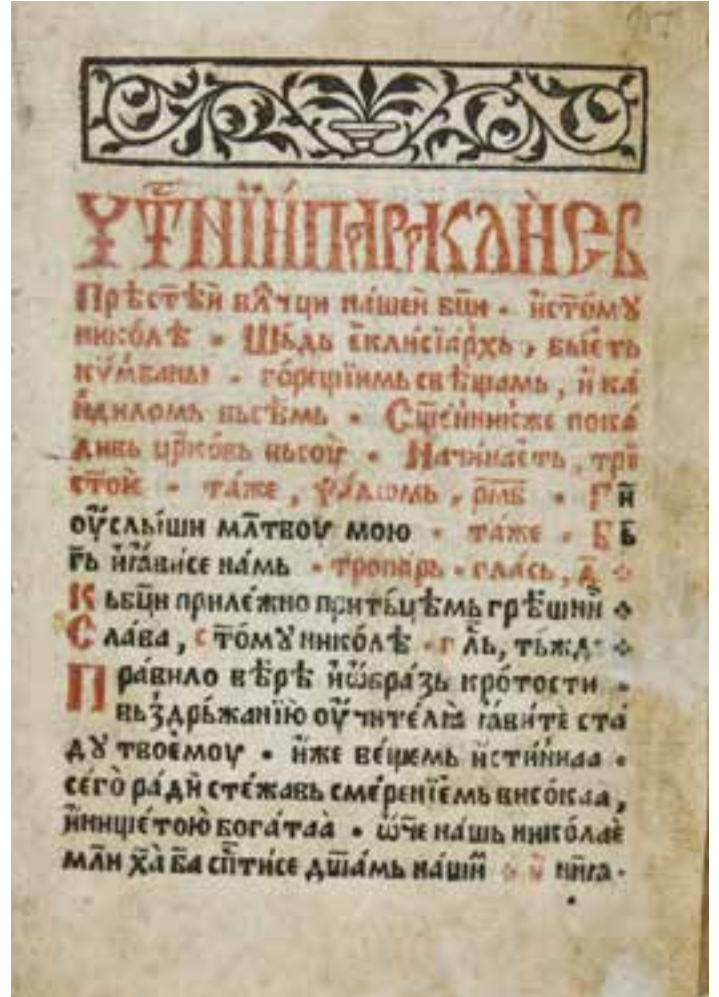 ЧТ҃НЇИ ПАРАКЛИСЬ
Прѣст҃ѣй вл҃чци на́шей бц҃и · и҆ ст҃ому
нико́лѣ · Шь́дь є҆клисїа́рхь , бые́ть
го́рещїимь свѣщамь , и҆ ка
н҆диломь вьсѣмь · Сщ҃е́нникже пока́
дивь цр҃ковь вьсоу · Начина́еть , три
ст҃ое · та́же , ѱало́мь , рм҃в · Г҃и
оу҆слы́ши мл҃твоу мою · та́же · Б
г҃ь и҆ ꙗ҆ви́се на́мь · тропа́рь · гла́сь , д҃
К ьбц҃и приле́жно прить́цѣмь грѣ́шнїи
С ла́ва , ст҃ому нико́лѣ · гл҃ь , ть́жд
П ра́вило вѣ́рѣ и҆ ѡ҆́бразь кро́тости ·
вьздрьжа́нїю оу҆чи́телꙗ ꙗ҆ви́те ста́
ду твоемоу · и҆́же ве́щемь и҆́стиннаа ·
сего̀ ра́ди сте́жавь смере́нїемь висо́каа ,
и҆ нище́тою бога́таа · ѡ҆́ч҃е на́шь нико́лае
мл҃и ха҃ ба҃ сп҃ти́се дш҃а́мь на́шим · и҆ ни҃ꙗ ·